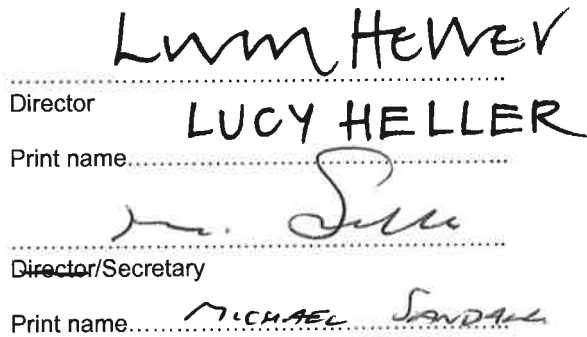 Lucy Heller
Director
LUCY HELLER
Print name
Director/Secretary
Print name MICHAEL SANDALL